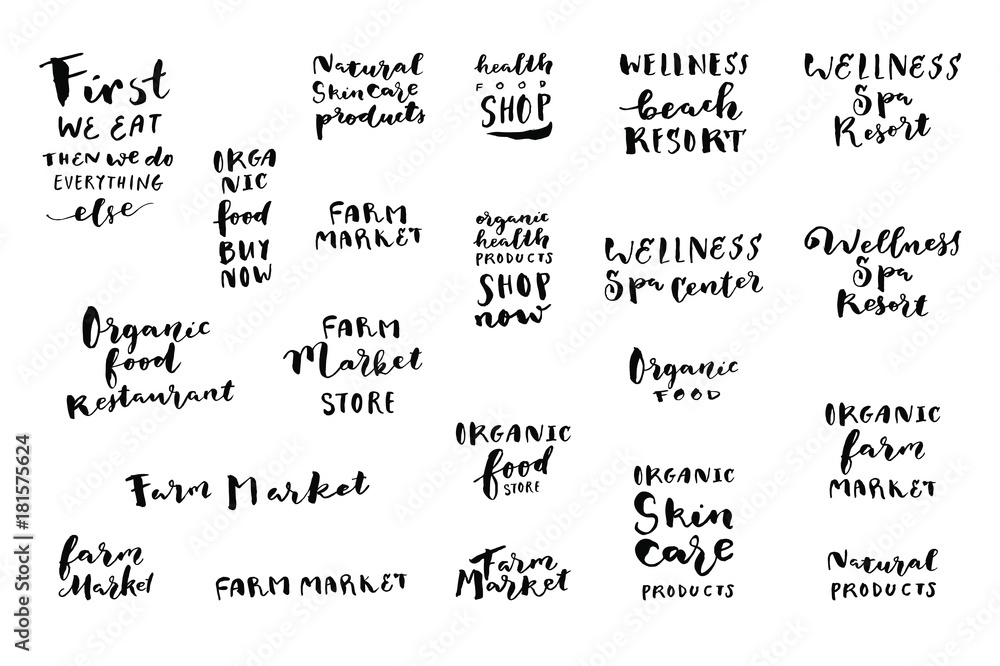 First
WE EAT
THEN we do
EVERYTHING
else
Natural
Skin care
products
health
FOOD
SHOP
WELLNESS
beach
RESORT
WELLNESS
Spa
Resort
ORGA
NIC
food
BUY
NOW
FARM
MARKET
organic
health
PRODUCTS
SHOP
now
WELLNESS
Spa Center
Wellness
Spa
Resort
Organic
food
Restaurant
FARM
Market
STORE
Organic
FOOD
ORGANIC
food
STORE
ORGANIC
farm
MARKET
Farm Market
ORGANIC
Skin
care
PRODUCTS
farm
Market
FARM MARKET
Farm
Market
Natural
PRODUCTS
Adobe Stock | #181575624
Adobe Stock